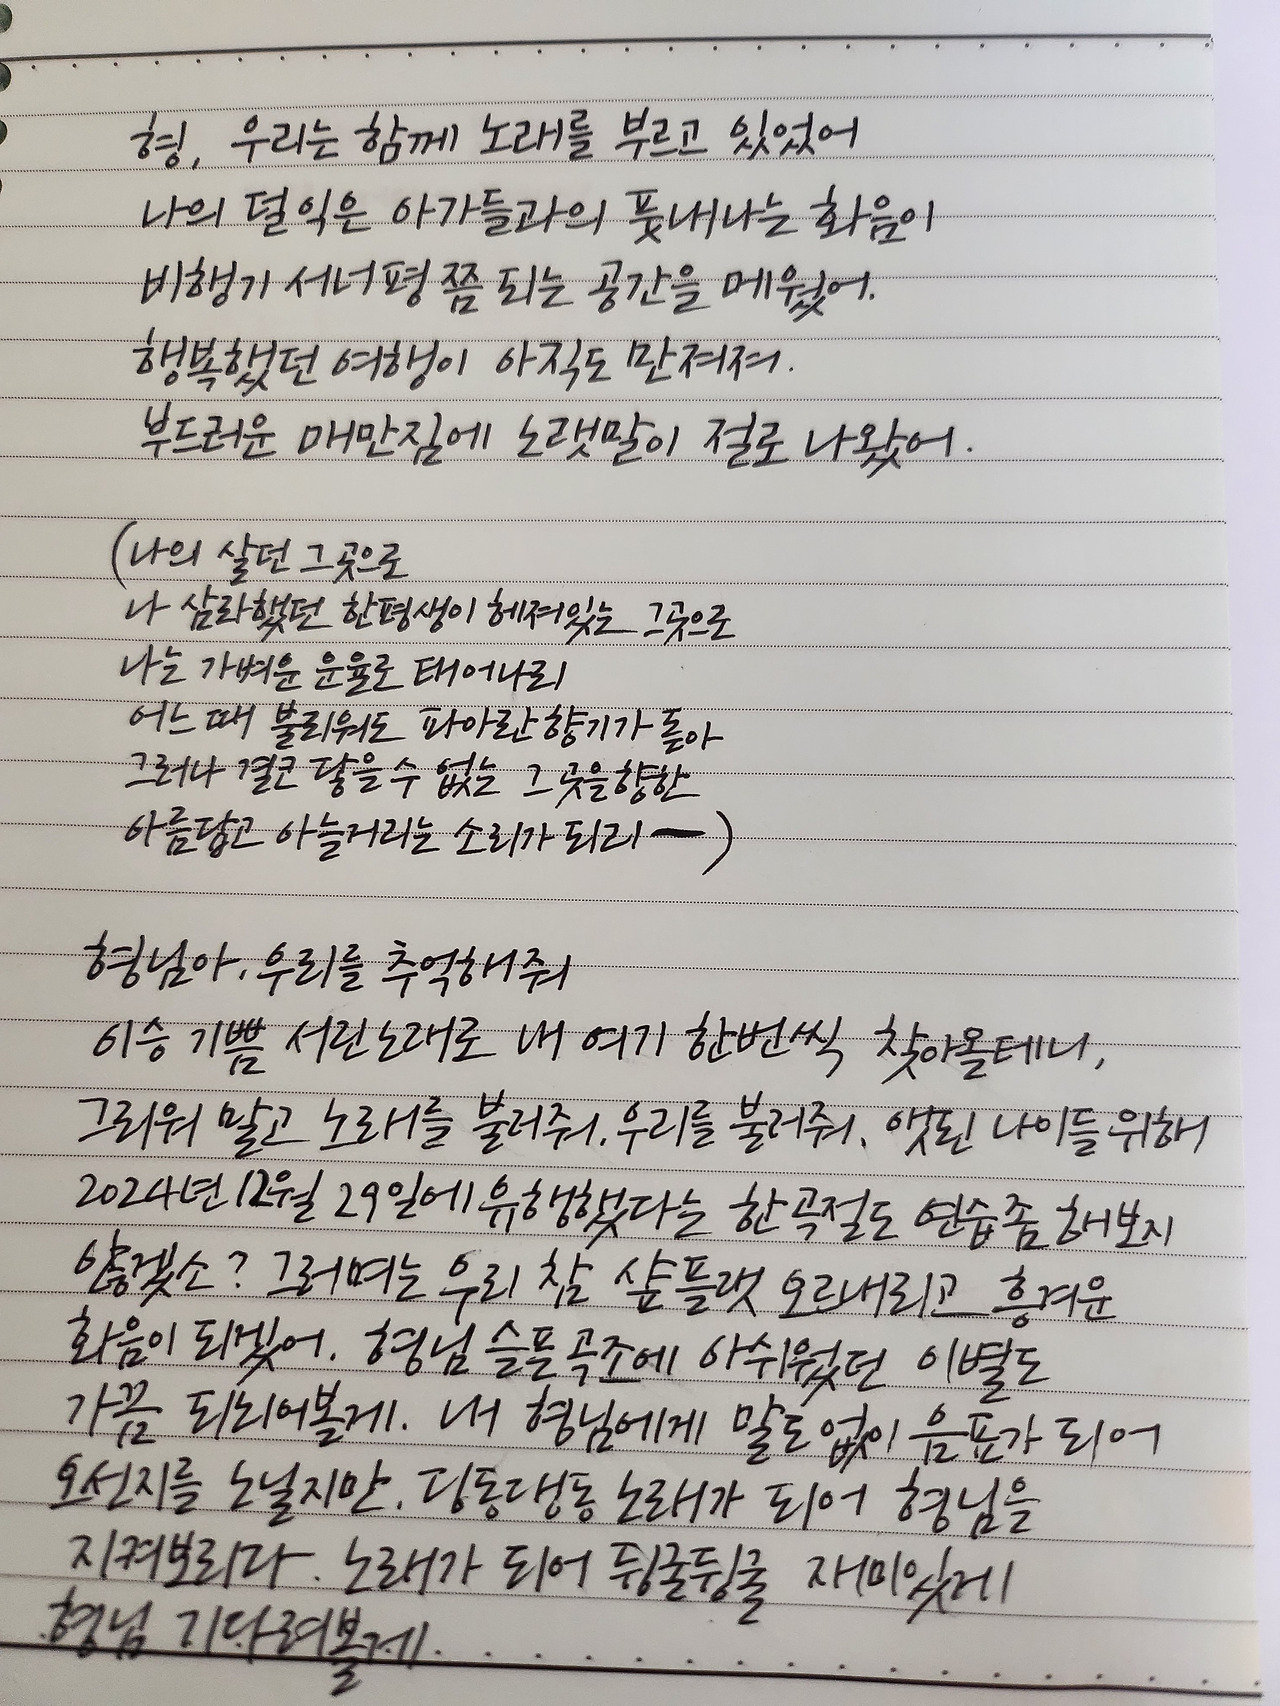 형, 우리는 함께 노래를 부르고 있었어
나의 덜 익은 아가들과의 풋내나는 화음이
비행기 서너평 쯤 되는 공간을 메웠어.
행복했던 여행이 아직도 만져져.
부드러운 매만짐에 노랫말이 절로 나왔어.
(나의 살던 그곳으로
나 삼라했던 한평생이 헤져있는 그곳으로
나는 가벼운 운율로 태어나리
어느 때 불리워도 파아란 향기가 돋아
그러나 결코 닿을 수 없는 그 곳을 향한
아름답고 아늘거리는 소리가 되리ー)
형님아, 우리를 추억해줘
이승 기쁨 서린 노래로 내 여기 한번씩 찾아올테니,
그리워 말고 노래를 불러줘. 우리를 불러줘. 앳된 나이들 위해
2024년 12월 29일에 유행했다는 한 곡절도 연습 좀 해보지
않겠소? 그러며는 우리 참 샾플랫 오르내리고 흥겨운
화음이 되겠어. 형님 슬픈 곡조에 아쉬웠던 이별도
가끔 되뇌어볼게. 내 형님에게 말도 없이 음표가 되어
오선지를 노닐지만, 딩동댕동 노래가 되어 형님을
지켜보리다. 노래가 되어 뒹굴뒹굴 재미있게
형님 기다려볼게.